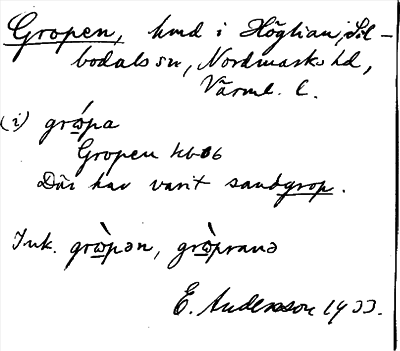 Gropen, hmd i Höglian, Sil-
bodals sn, Nordmarks hd,
Värml. l.
(i) grώ̲pa
Gropen hb06
Där har varit sandgrop.
Ink. grὼ̲pən, grὼ̲pranə
E. Andersson 1933.